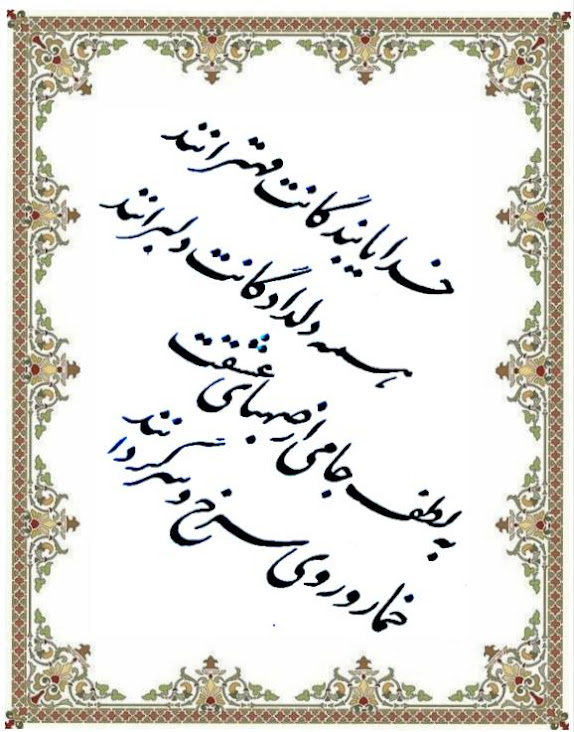 خدایا بندگانت مهترانند
همه دلدادگانت دلبرانند
به لطف جامی از صهبای عشقت
خمار و روی سرخ و سرگردانند